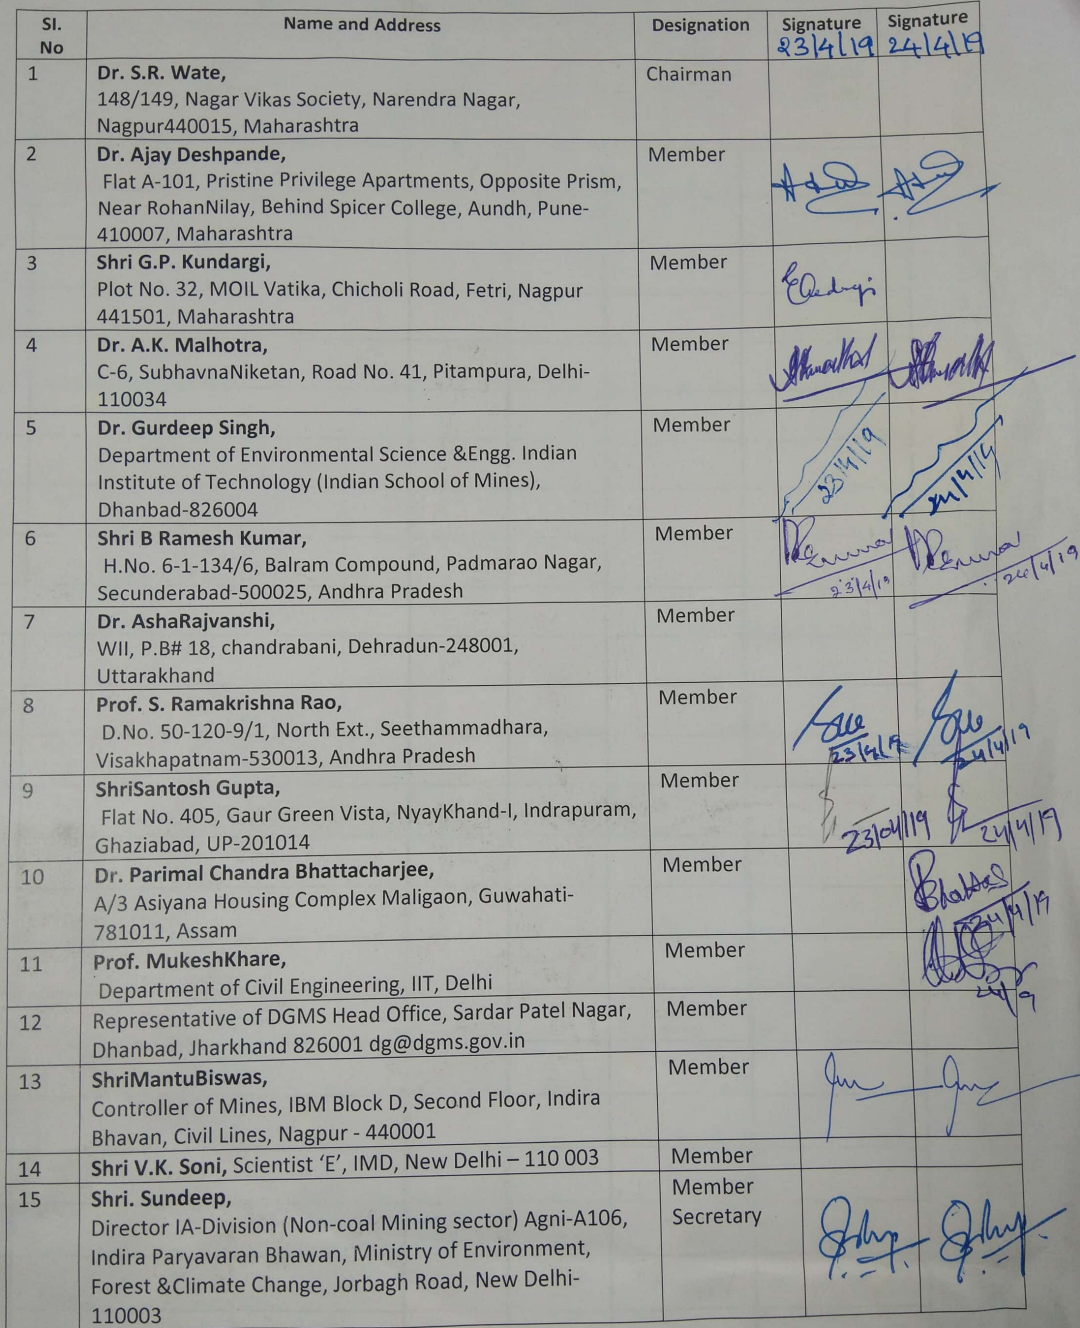 Sl. No Name and Address Designation Signature Signature
23/4/19 24/4/19
1 Dr. S.R. Wate, Chairman
148/149, Nagar Vikas Society, Narendra Nagar,
Nagpur440015, Maharashtra
2 Dr. Ajay Deshpande, Member
Flat A-101, Pristine Privilege Apartments, Opposite Prism,
Near RohanNilay, Behind Spicer College, Aundh, Pune-
410007, Maharashtra
3 Shri G.P. Kundargi, Member
Plot No. 32, MOIL Vatika, Chicholi Road, Fetri, Nagpur
441501, Maharashtra
4 Dr. A.K. Malhotra, Member
C-6, SubhavnaNiketan, Road No. 41, Pitampura, Delhi-
110034
5 Dr. Gurdeep Singh, Member
Department of Environmental Science &Engg. Indian
Institute of Technology (Indian School of Mines),
Dhanbad-826004
23/4/19 24/4/19
6 Shri B Ramesh Kumar, Member
H.No. 6-1-134/6, Balram Compound, Padmarao Nagar,
Secunderabad-500025, Andhra Pradesh
23/4/19 24/4/19
7 Dr. AshaRajvanshi, Member
WII, P.B# 18, chandrabani, Dehradun-248001,
Uttarakhand
8 Prof. S. Ramakrishna Rao, Member
D.No. 50-120-9/1, North Ext., Seethammadhara,
Visakhapatnam-530013, Andhra Pradesh
23/4/19 24/4/19
9 ShriSantosh Gupta, Member
Flat No. 405, Gaur Green Vista, NyayKhand-I, Indrapuram,
Ghaziabad, UP-201014
23/04/19 24/4/19
10 Dr. Parimal Chandra Bhattacharjee, Member
A/3 Asiyana Housing Complex Maligaon, Guwahati-
781011, Assam
24/4/19
11 Prof. MukeshKhare, Member
Department of Civil Engineering, IIT, Delhi
12 Representative of DGMS Head Office, Sardar Patel Nagar, Member
Dhanbad, Jharkhand 826001 dg@dgms.gov.in
13 ShriMantuBiswas, Member
Controller of Mines, IBM Block D, Second Floor, Indira
Bhavan, Civil Lines, Nagpur - 440001
14 Shri V.K. Soni, Scientist 'E', IMD, New Delhi – 110 003 Member
15 Shri. Sundeep, Member Secretary
Director IA-Division (Non-coal Mining sector) Agni-A106,
Indira Paryavaran Bhawan, Ministry of Environment,
Forest &Climate Change, Jorbagh Road, New Delhi-
110003